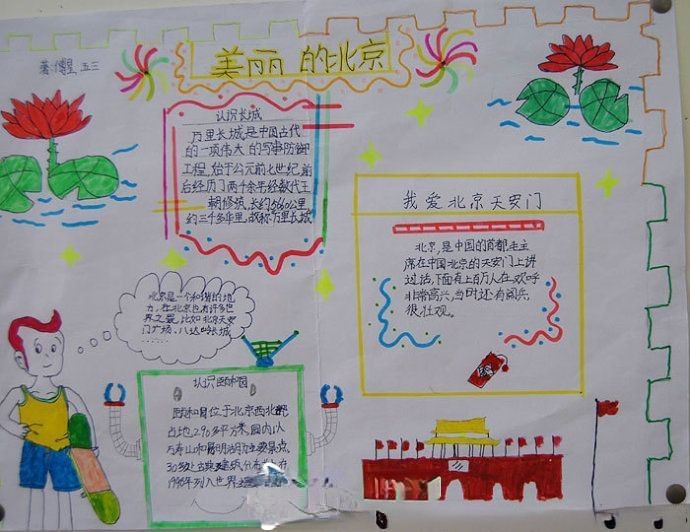 美丽的北京
著:傅星 五三
认识长城
万里长城,是中国古代
的一项伟大的军事防御
工程,始于公元前七世纪,前
后经历了两千余年经数代王
朝修筑,长约5660公里
约三千多年里,故称万里长城
我爱北京天安门
北京,是中国的首都毛主
席在中国北京的天安门上讲
过话,下面有上百万人在欢呼
非常高兴,当时还有阅兵,
很壮观。
北京是一个和谐的地
方,在北京也有许多世
界之最,比如北京天安
门广场、八达岭长城
……
认识颐和园
颐和园位于北京西北部
占地290多平方米,园内以
万寿山和昆明湖为主要景点
30多处古典建筑分布
1998年列入世界